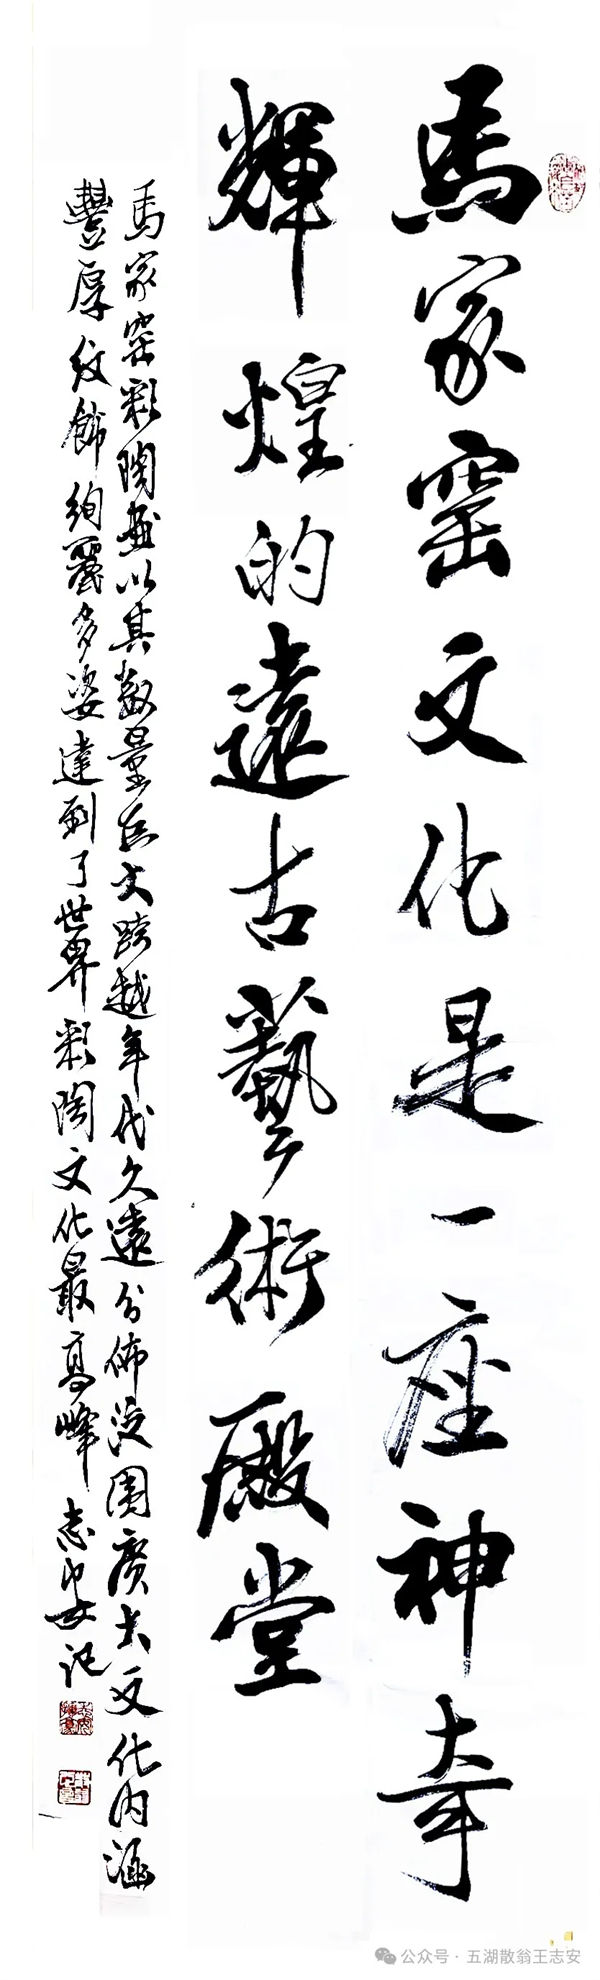 馬家窑文化是一座神奇
輝煌的遠古藝術殿堂
馬家窑彩陶畫以其数量巨大跨越年代久遠分佈泛围廣大文化内涵
豐厚纹飾绚麗多姿達到了世界彩陶文化最高峰 志安记
公众号·五湖散翁王志安